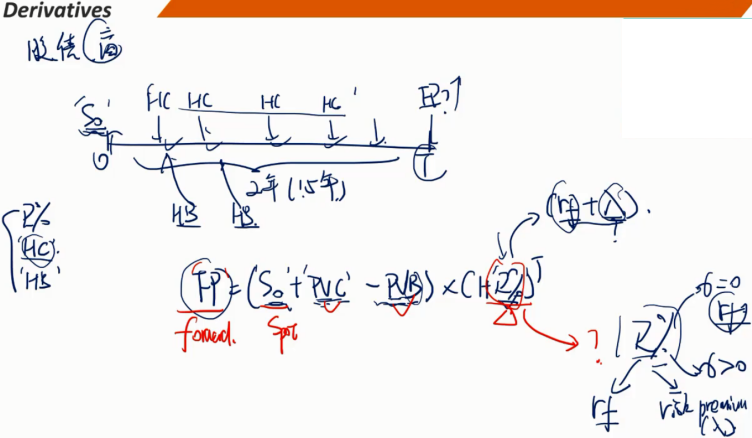 Derivatives
股债
HC HC HC HC
FP?↑
'S₀'
0
T
2年(1.5年)
HB HB
R%
'HC'.
'HB'
(rf+λ).
?
FP=(S₀+PVC-PVB)×(1+R%)ᵀ
forward. Spot
?
R%
σ=0
rf
σ>0
rf
risk premium
(λ)